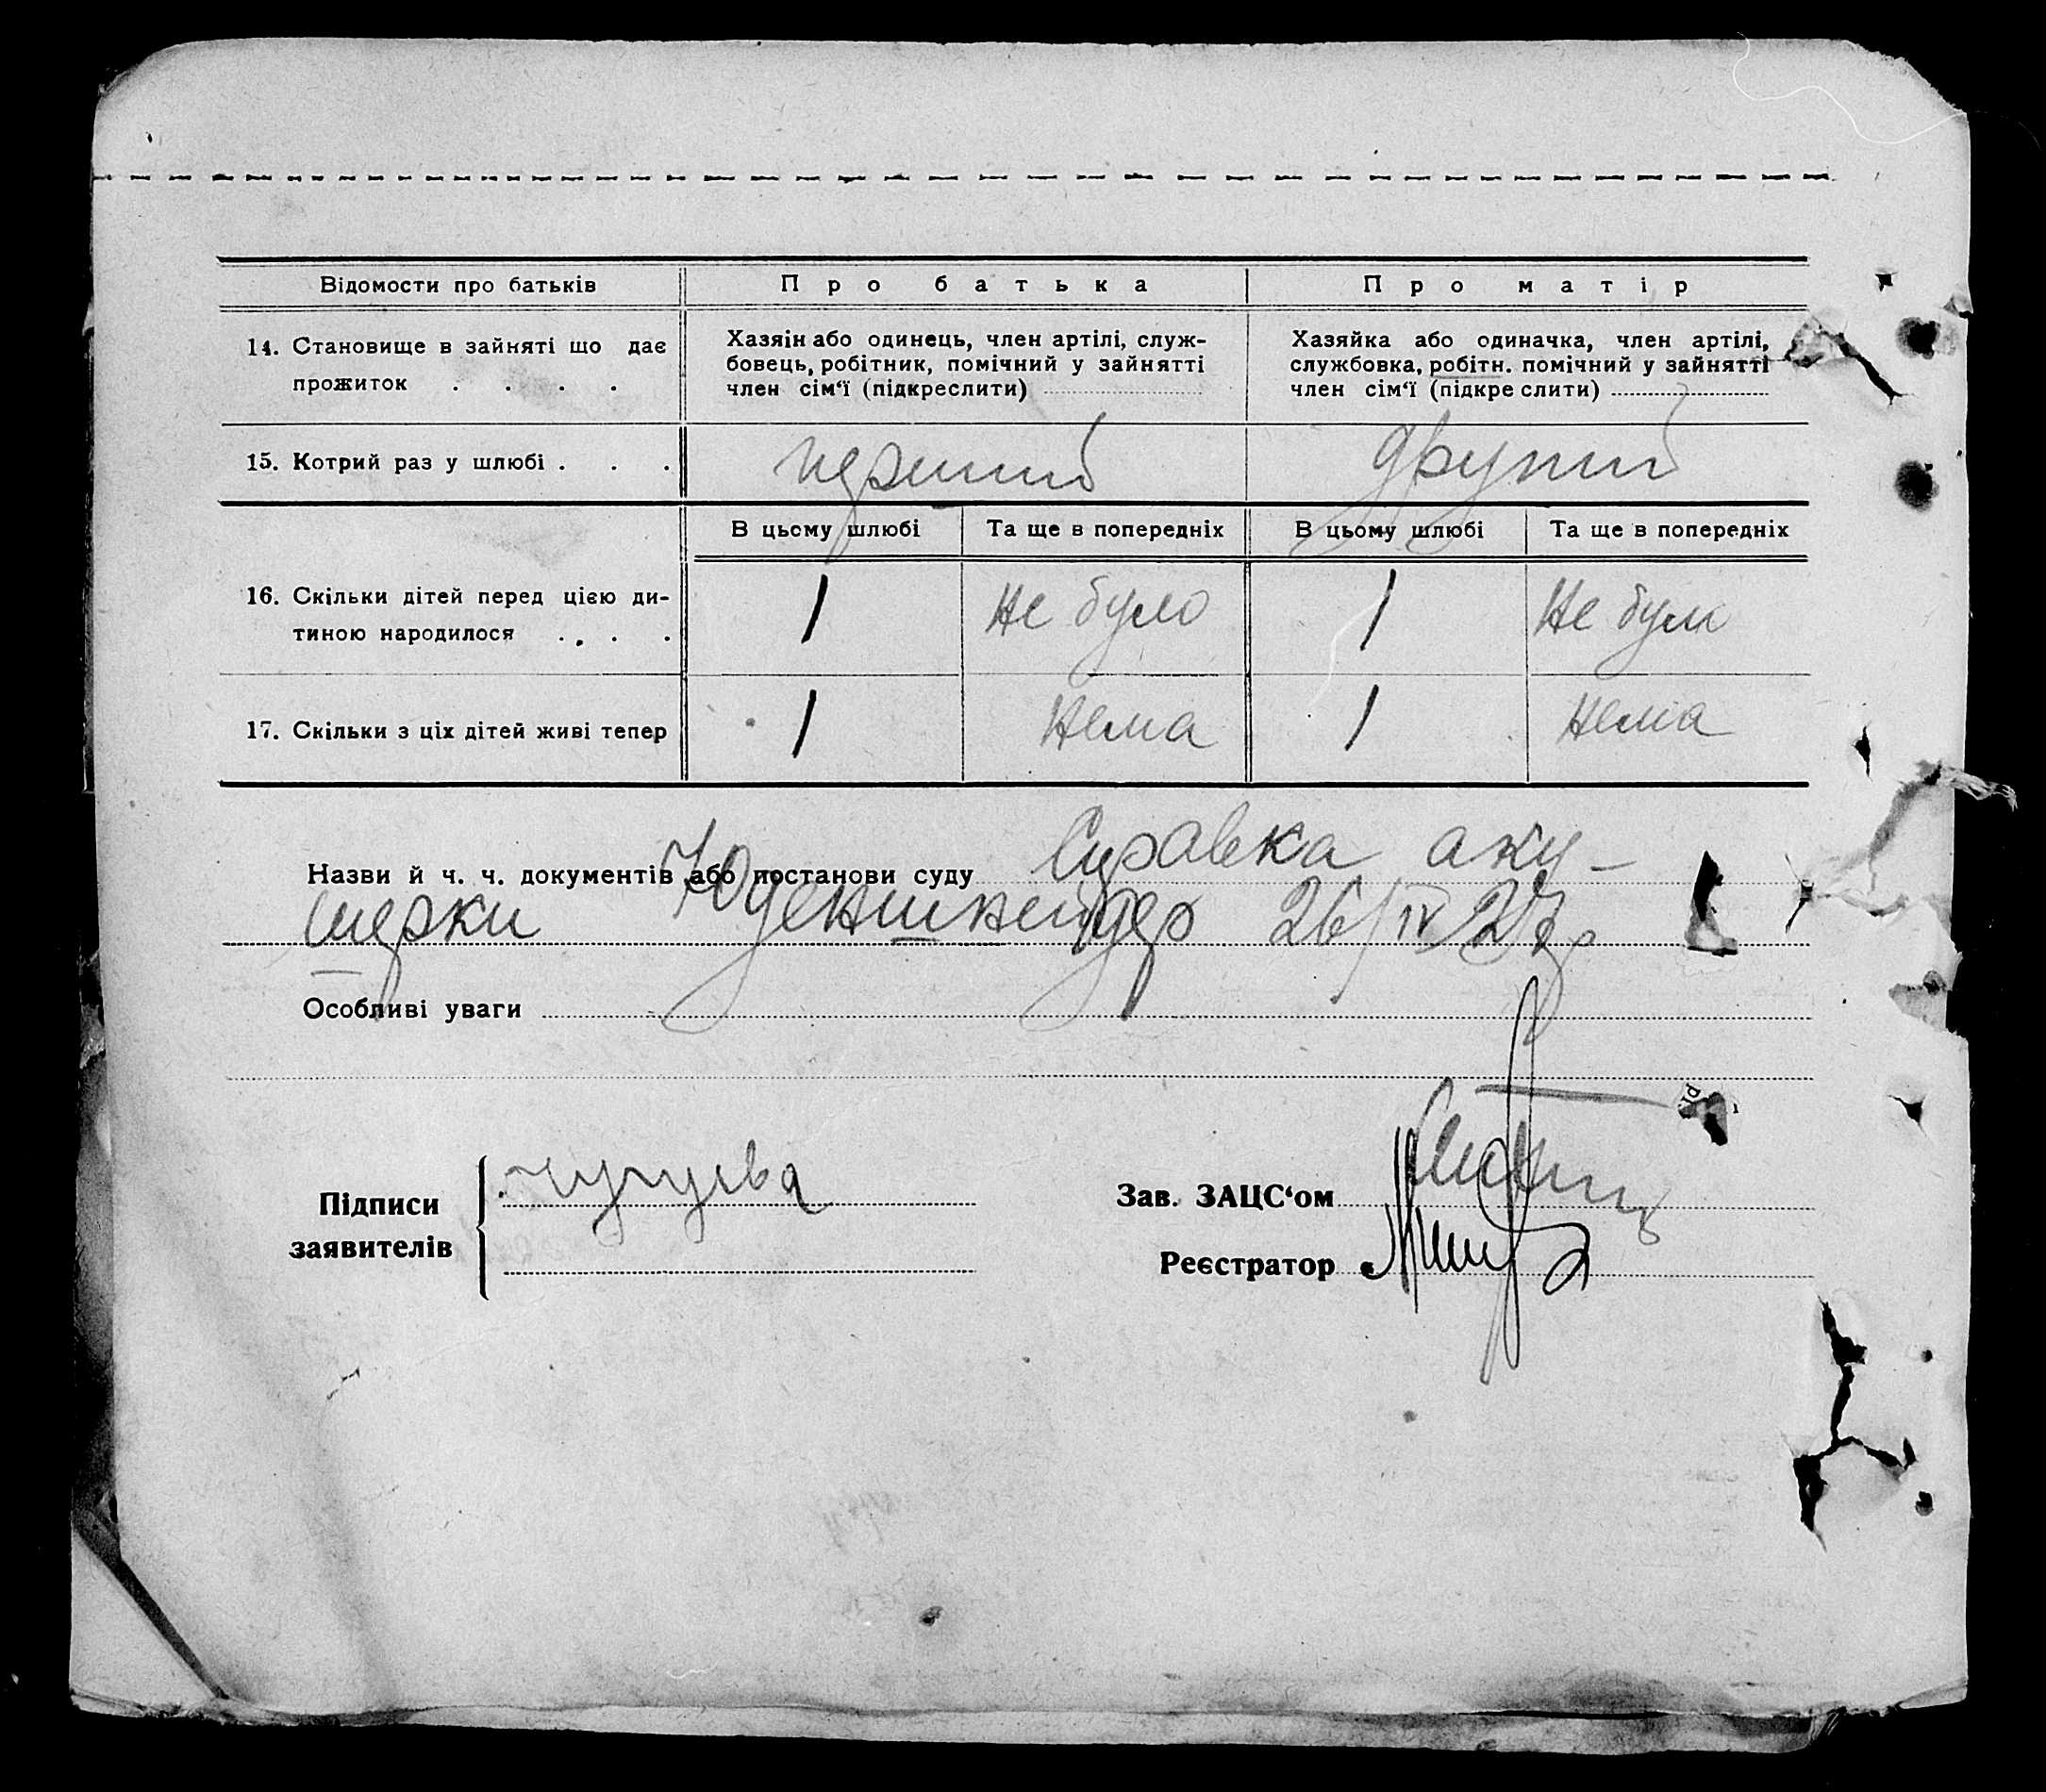 Відомости про батьків Про батька Про матір
14. Становище в зайняті що дає прожиток . . . .
Хазяїн або одинець, член артілі, служ-
бовець, робітник, помічний у зайнятті
член сім‘ї (підкреслити)
Хазяйка або одиначка, член артілі,
службовка, робітн. помічний у зайнятті
член сім‘ї (підкреслити)
15. Котрий раз у шлюбі . . . перший другий
В цьому шлюбі Та ще в попередніх В цьому шлюбі Та ще в попередніх
16. Скільки дітей перед цією ди-
тиною народилося . . . .
1 не було 1 не було
17. Скільки з ціх дітей живі тепер 1 нема 1 нема
Назви й ч. ч. документів або постанови суду Справка аку-
шерки 26/IV 27р
Особливі уваги
Підписи
заявителів
Зав. ЗАЦС‘ом
Реєстратор